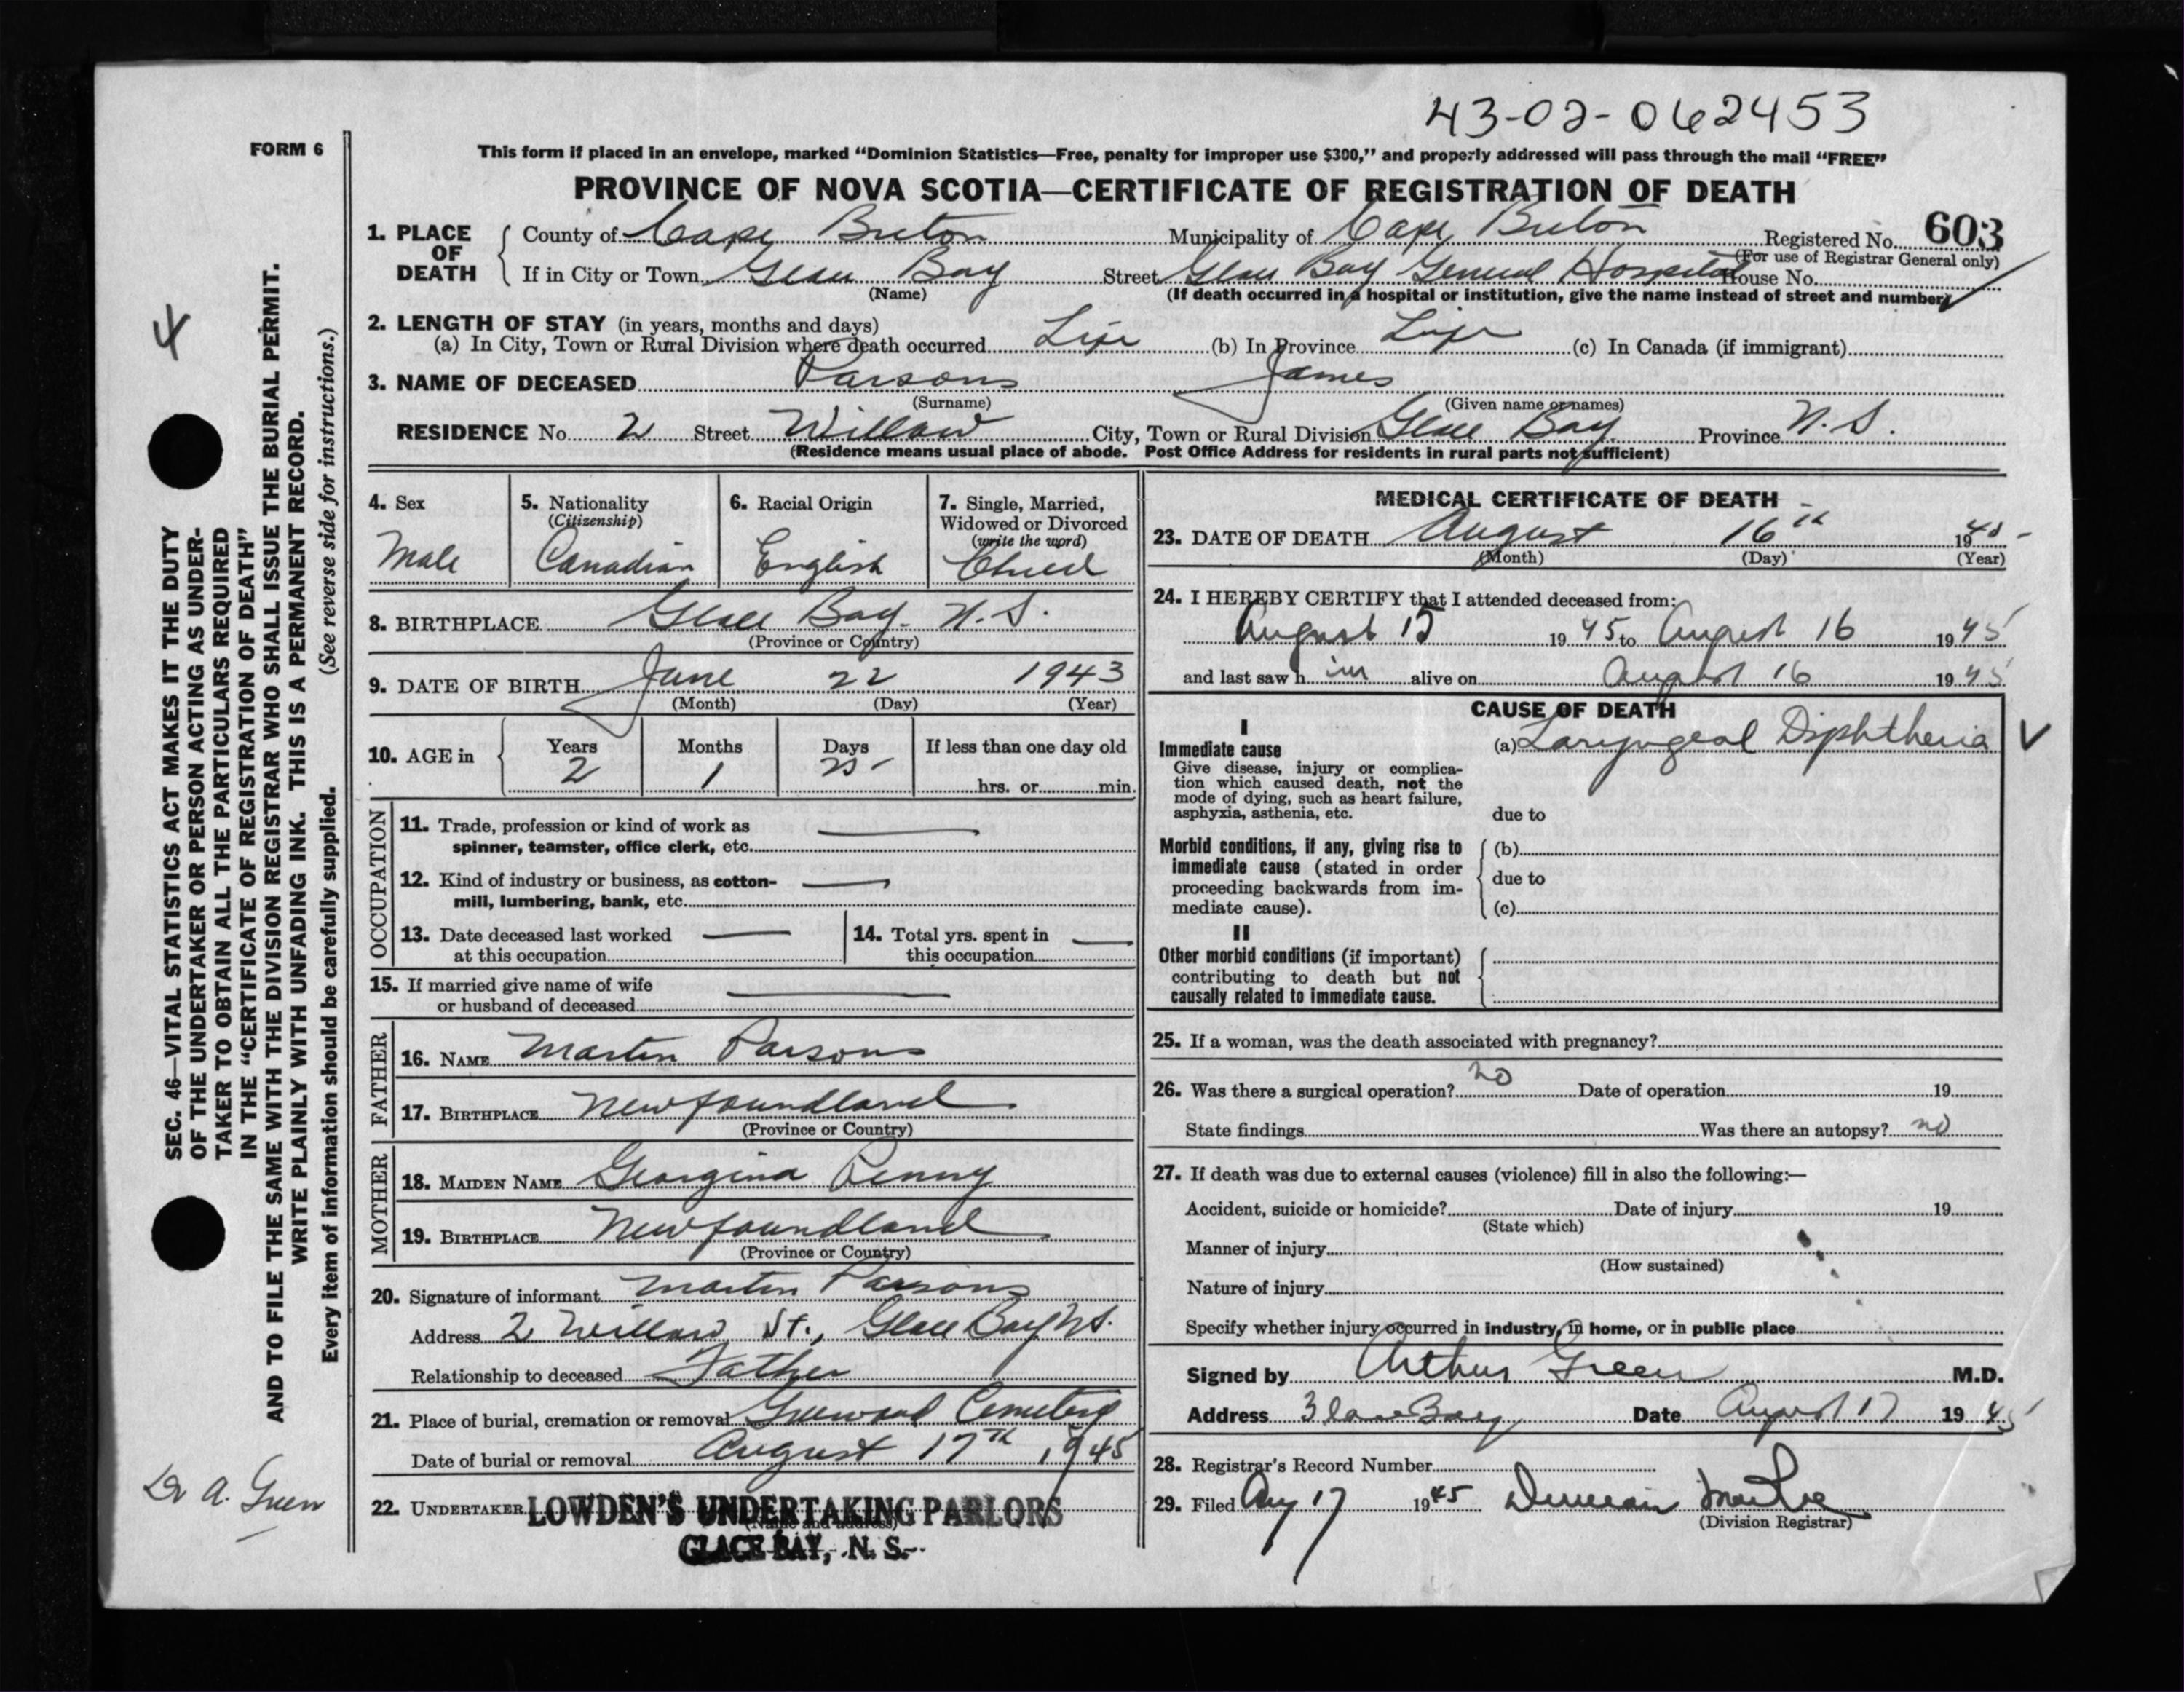 43-02-062453
FORM 6
This form if placed in an envelope, marked “Dominion Statistics—Free, penalty for improper use $300,” and properly addressed will pass through the mail “FREE”
PROVINCE OF NOVA SCOTIA—CERTIFICATE OF REGISTRATION OF DEATH
1. PLACE OF DEATH
County of Cape Breton Municipality of Cape Breton Registered No. 603
(For use of Registrar General only)
If in City or Town Glace Bay Street Glace Bay General Hospital House No.
(Name) (If death occurred in a hospital or institution, give the name instead of street and number)
2. LENGTH OF STAY (in years, months and days)
(a) In City, Town or Rural Division where death occurred Life (b) In Province Life (c) In Canada (if immigrant)
3. NAME OF DECEASED Parsons James
(Surname) (Given name or names)
RESIDENCE No. 2 Street Willow City, Town or Rural Division Glace Bay Province N.S.
(Residence means usual place of abode. Post Office Address for residents in rural parts not sufficient)
4. Sex
Male
5. Nationality
(Citizenship)
Canadian
6. Racial Origin
English
7. Single, Married,
Widowed or Divorced
(write the word)
Child
8. BIRTHPLACE Glace Bay. N.S.
(Province or Country)
9. DATE OF BIRTH June 22 1943
(Month) (Day) (Year)
10. AGE in
Years Months Days If less than one day old
2 1 25
hrs. or min.
OCCUPATION
11. Trade, profession or kind of work as
spinner, teamster, office clerk, etc.
12. Kind of industry or business, as cotton-
mill, lumbering, bank, etc.
13. Date deceased last worked
at this occupation
14. Total yrs. spent in
this occupation
15. If married give name of wife
or husband of deceased
FATHER
16. NAME Martin Parsons
17. BIRTHPLACE Newfoundland
(Province or Country)
MOTHER
18. MAIDEN NAME Georgina Penny
19. BIRTHPLACE Newfoundland
(Province or Country)
20. Signature of informant Martin Parsons
Address 2 Willow St., Glace Bay N.S.
Relationship to deceased Father
21. Place of burial, cremation or removal Greenwood Cemetery
Date of burial or removal August 17th 1945
22. UNDERTAKER LOWDEN'S UNDERTAKING PARLORS
(Name and address)
GLACE BAY, N. S.
MEDICAL CERTIFICATE OF DEATH
23. DATE OF DEATH August 16th 1945
(Month) (Day) (Year)
24. I HEREBY CERTIFY that I attended deceased from:
August 15 1945 to August 16 1945
and last saw him alive on August 16 1945
CAUSE OF DEATH
I
Immediate cause (a) Laryngeal Diphtheria
Give disease, injury or complica-
tion which caused death, not the
mode of dying, such as heart failure,
asphyxia, asthenia, etc. due to
Morbid conditions, if any, giving rise to (b)
immediate cause (stated in order
proceeding backwards from im- due to
mediate cause). (c)
II
Other morbid conditions (if important)
contributing to death but not
causally related to immediate cause.
25. If a woman, was the death associated with pregnancy?
26. Was there a surgical operation? no Date of operation 19
State findings Was there an autopsy? no
27. If death was due to external causes (violence) fill in also the following:—
Accident, suicide or homicide? Date of injury 19
(State which)
Manner of injury
(How sustained)
Nature of injury
Specify whether injury occurred in industry, in home, or in public place
Signed by Arthur Green M.D.
Address Glace Bay Date August 17 1945
28. Registrar's Record Number
29. Filed Aug 17 1945 Duncan
(Division Registrar)
4
SEC. 46—VITAL STATISTICS ACT MAKES IT THE DUTY
OF THE UNDERTAKER OR PERSON ACTING AS UNDER-
TAKER TO OBTAIN ALL THE PARTICULARS REQUIRED
IN THE “CERTIFICATE OF REGISTRATION OF DEATH”
AND TO FILE THE SAME WITH THE DIVISION REGISTRAR WHO SHALL ISSUE THE BURIAL PERMIT.
WRITE PLAINLY WITH UNFADING INK. THIS IS A PERMANENT RECORD.
Every item of information should be carefully supplied. (See reverse side for instructions.)
Dr A. Green